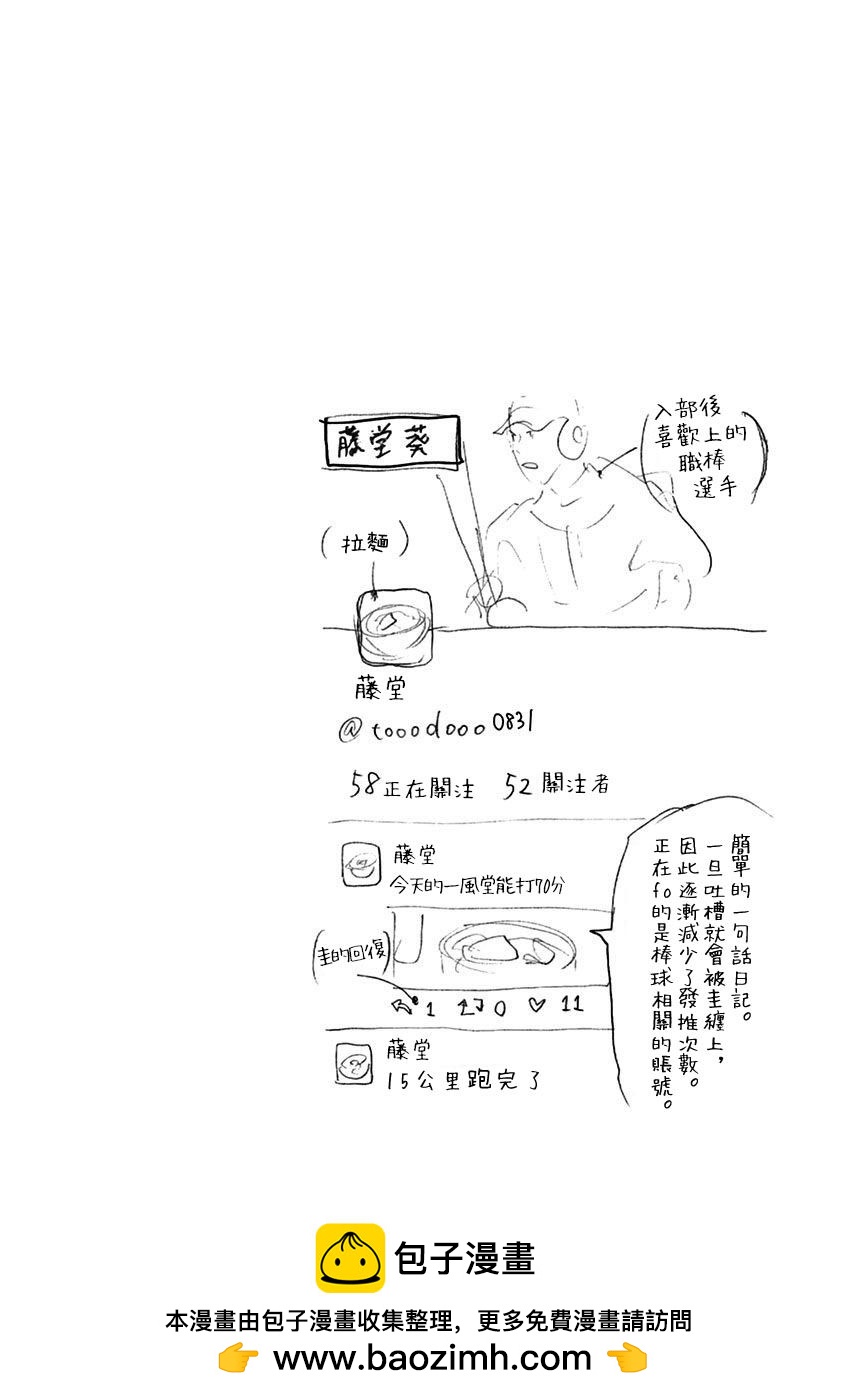 藤堂葵
入部後
喜歡上的
職棒
選手
(拉麵)
藤堂
@tooodooo0831
58正在關注 52關注者
藤堂
今天的一風堂能打70分
(圭的回復)
1 0 11
藤堂
15公里跑完了
簡單的一句話日記。
一旦吐槽就會被圭纏上，
因此逐漸減少了發推次數。
正在fo的是棒球相關的賬號。
包子漫畫
本漫畫由包子漫畫收集整理，更多免費漫畫請訪問
👉 www.baozimh.com 👈